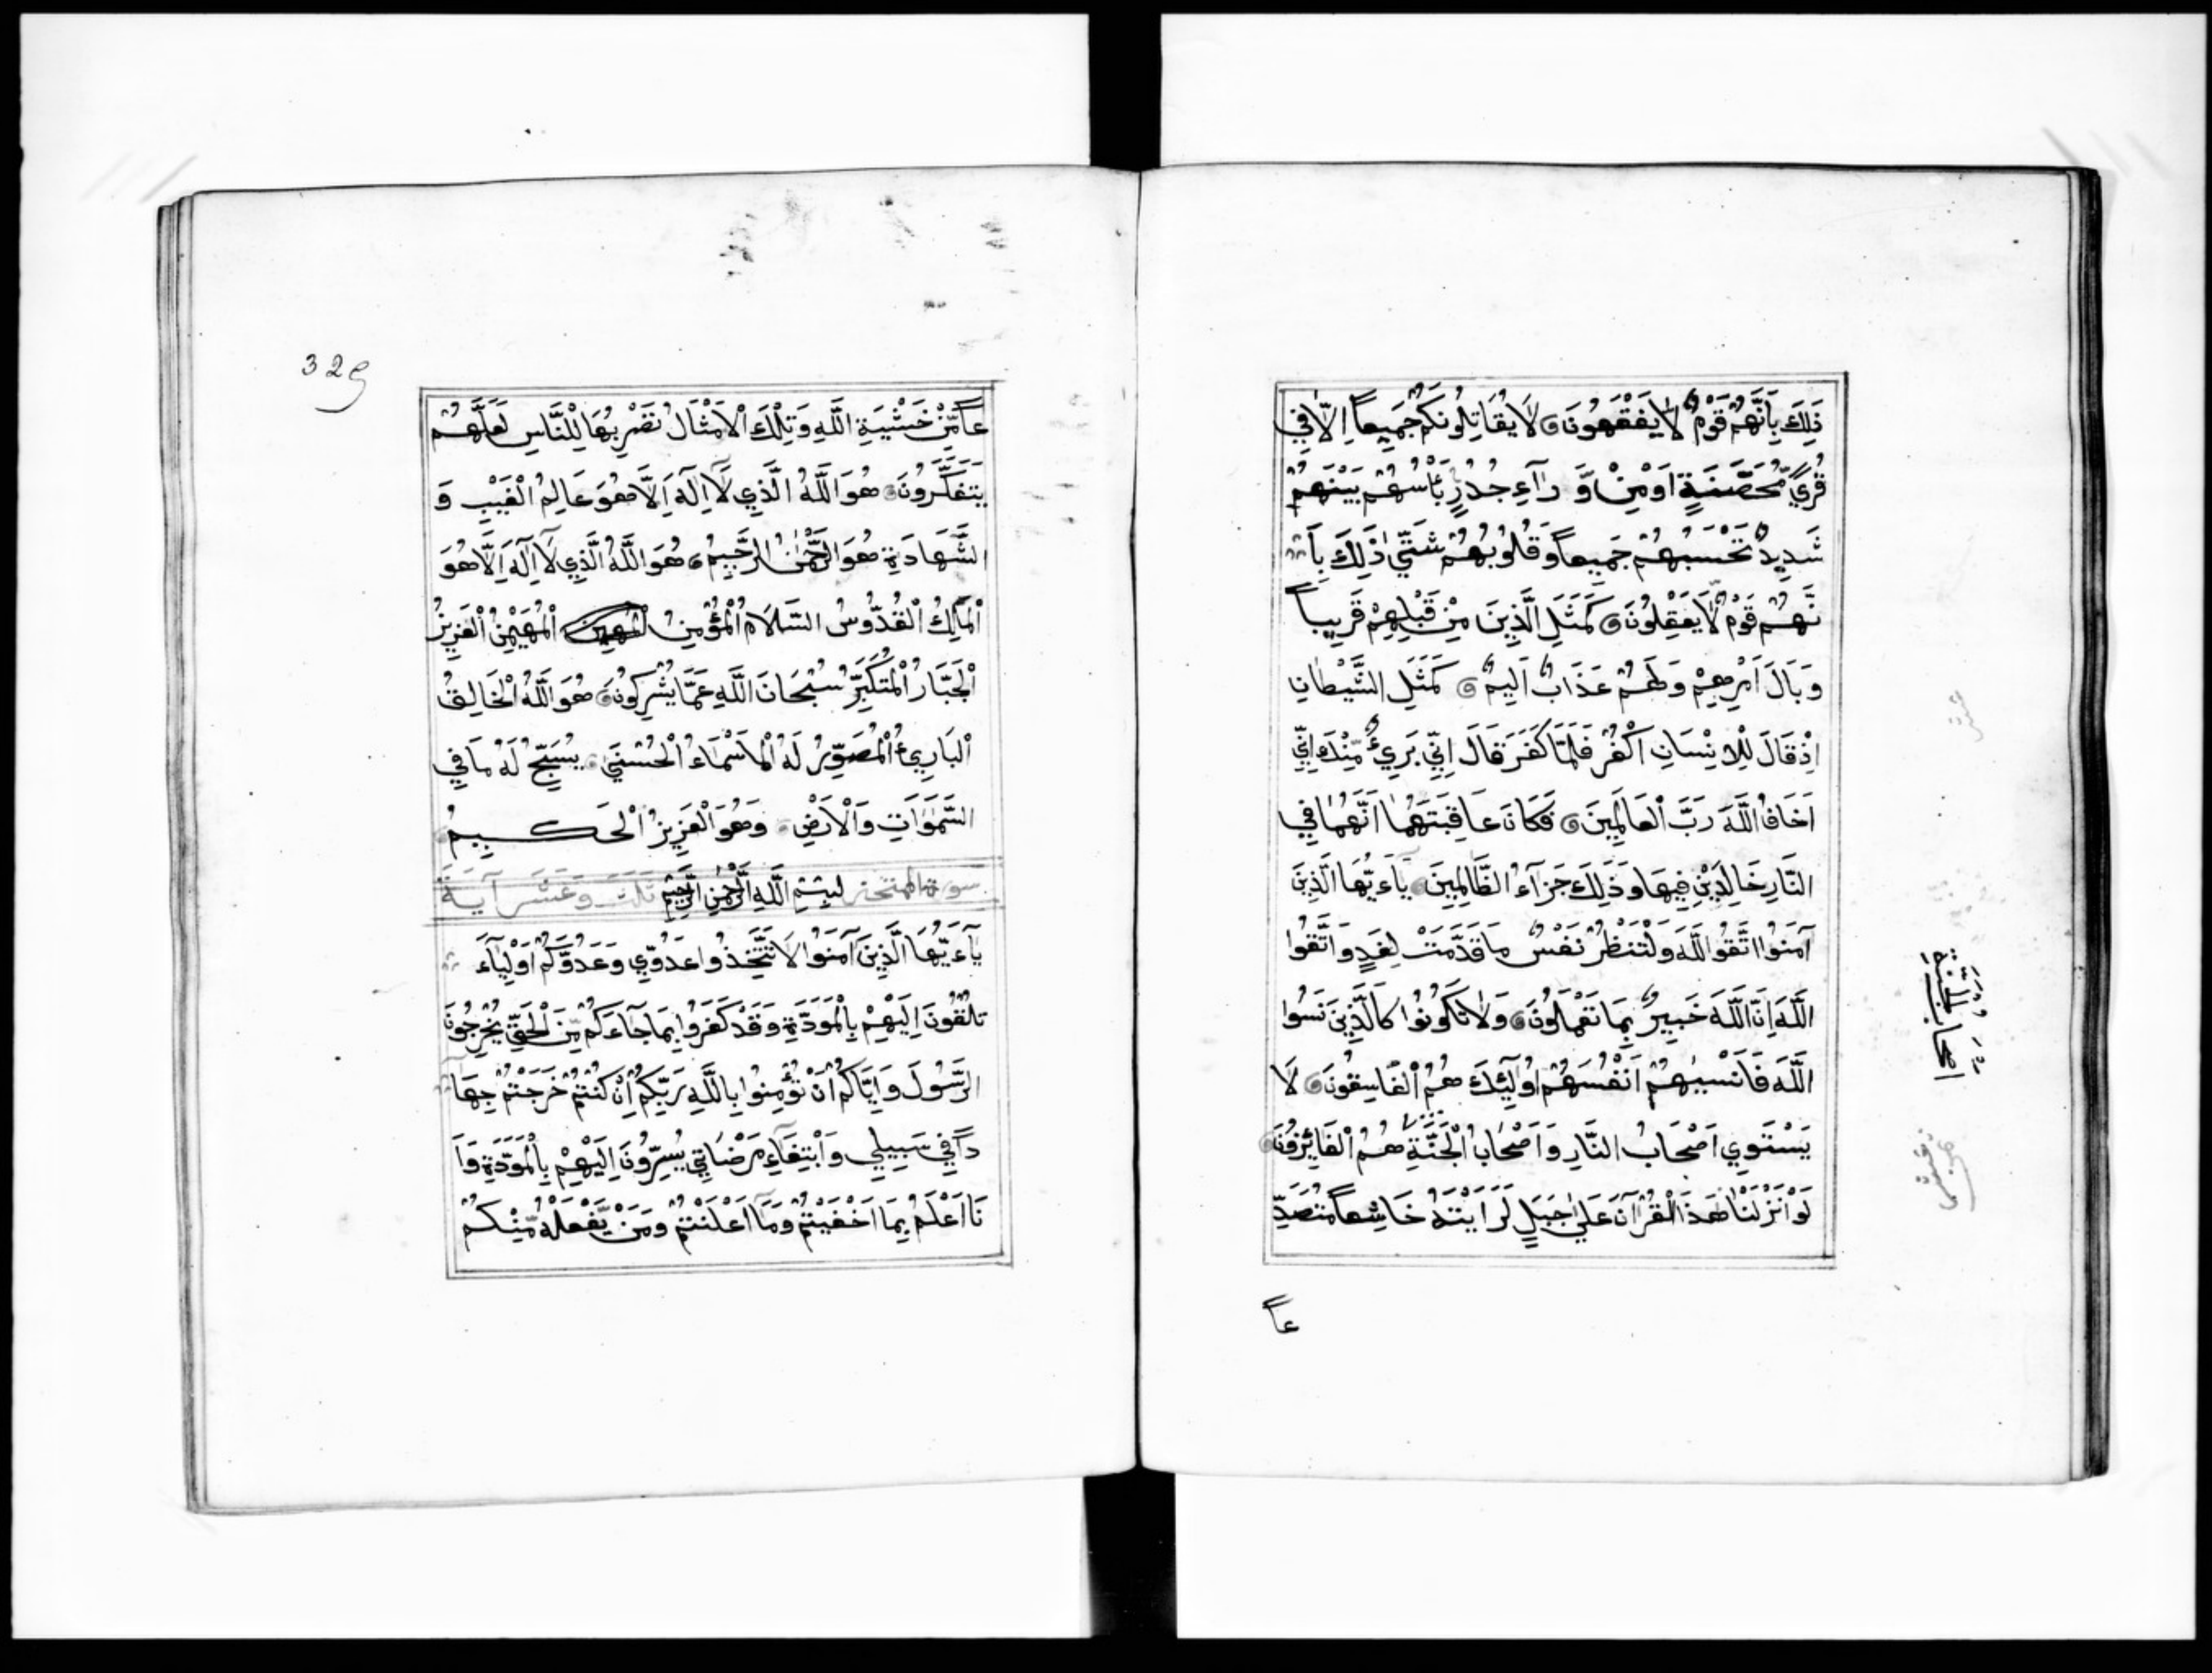 ذَلِكَ بِاَنَّهُمْ قَوْمٌ لَا يَفْقَهُونَ لَا يُقَاتِلُونَكُمْ جَمِيعاً اِلَّا فِي
قُرًي مُّحَصَّنَةٍ اَوْ مِنْ وَّ رَآءِ جُدُرٍ بَأْسُهُمْ بَيْنَهُمْ
شَدِيدٌ تَحْسَبُهُمْ جَمِيعاً وَقُلُوبُهُمْ شَتَّي ذَلِكَ بِاَ
نَّهُمْ قَوْمٌ لَّا يَعْقِلُونَ كَمَثَلِ الَّذِينَ مِنْ قَبْلِهِمْ قَرِيباً
وَبَالَ اَمْرِهِمْ وَلَهُمْ عَذَابٌ اَلِيمٌ كَمَثَلِ الشَّيْطَانِ
اِذْ قَالَ لِلْاِنْسَانِ اكْفُرْ فَلَمَّا كَفَرَ قَالَ اِنِّي بَرِيءٌ مِّنْكَ اِنِّي
اَخَافُ اللَّهَ رَبَّ الْعَالَمِينَ فَكَانَ عَاقِبَتَهُمَا اَنَّهُمَا فِي
النَّارِ خَالِدَيْنِ فِيهَا وَذَلِكَ جَزَآءُ الظَّالِمِينَ يَآءَيُّهَا الَّذِينَ
آمَنُوا اتَّقُوا اللَّهَ وَلْتَنْظُرْ نَفْسٌ مَا قَدَّمَتْ لِغَدٍ وَاتَّقُوا
اللَّهَ اِنَّ اللَّهَ خَبِيرٌ بِمَا تَعْمَلُونَ وَلَا تَكُونُوا كَالَّذِينَ نَسُوا
اللَّهَ فَاَنْسٰيهُمْ اَنْفُسَهُمْ اُولَٓئِكَ هُمُ الْفَاسِقُونَ لَا
يَسْتَوِي اَصْحَابُ النَّارِ وَاَصْحَابُ الْجَنَّةِ هُمُ الْفَائِزُونَ
لَوْ اَنْزَلْنَا هَذَا الْقُرْآنَ عَلَي جَبَلٍ لَرَاَيْتَهُ خَاشِعاً مُتَصَدِّ
عاً
اصحاب الجنة
329
عاً مِّنْ خَشْيَةِ اللَّهِ وَتِلْكَ الْاَمْثَالُ نَضْرِبُهَا لِلنَّاسِ لَعَلَّهُمْ
يَتَفَكَّرُونَ هُوَ اللَّهُ الَّذِي لَآ اِلَهَ اِلَّا هُوَ عَالِمُ الْغَيْبِ وَ
الشَّهَادَةِ هُوَ الرَّحْمٰنُ الرَّحِيمُ هُوَ اللَّهُ الَّذِي لَآ اِلَهَ اِلَّا هُوَ
اَلْمَلِكُ الْقُدُّوسُ السَّلَامُ الْمُؤْمِنُ الْمُهَيْمِنُ الْعَزِيزُ
الْجَبَّارُ الْمُتَكَبِّرُ سُبْحَانَ اللَّهِ عَمَّا يُشْرِكُونَ هُوَ اللَّهُ الْخَالِقُ
الْبَارِيءُ الْمُصَوِّرُ لَهُ الْاَسْمَاءُ الْحُسْنَي يُسَبِّحُ لَهُ مَا فِي
السَّمَوَاتِ وَالْاَرْضِ وَهُوَ الْعَزِيزُ الْحَكِيمُ
سورة الممتحنه بِسْمِ اللَّهِ الرَّحْمٰنِ الرَّحِيمِ ثلث وعشر آية
يَآءَيُّهَا الَّذِينَ آمَنُوا لَا تَتَّخِذُوا عَدُوِّي وَعَدُوَّكُمْ اَوْلِيَآءَ
تُلْقُونَ اِلَيْهِمْ بِالْمَوَدَّةِ وَقَدْ كَفَرُوا بِمَا جَآءَكُمْ مِّنَ الْحَقِّ يُخْرِجُونَ
الرَّسُولَ وَاِيَّاكُمْ اَنْ تُؤْمِنُوا بِاللَّهِ رَبِّكُمْ اِنْ كُنْتُمْ خَرَجْتُمْ جِهَا
داً فِي سَبِيلِي وَابْتِغَآءَ مَرْضَاتِي تُسِرُّونَ اِلَيْهِمْ بِالْمَوَدَّةِ وَاَ
نَا اَعْلَمُ بِمَا اَخْفَيْتُمْ وَمَآ اَعْلَنْتُمْ وَمَنْ يَّفْعَلْهُ مِنْكُمْ